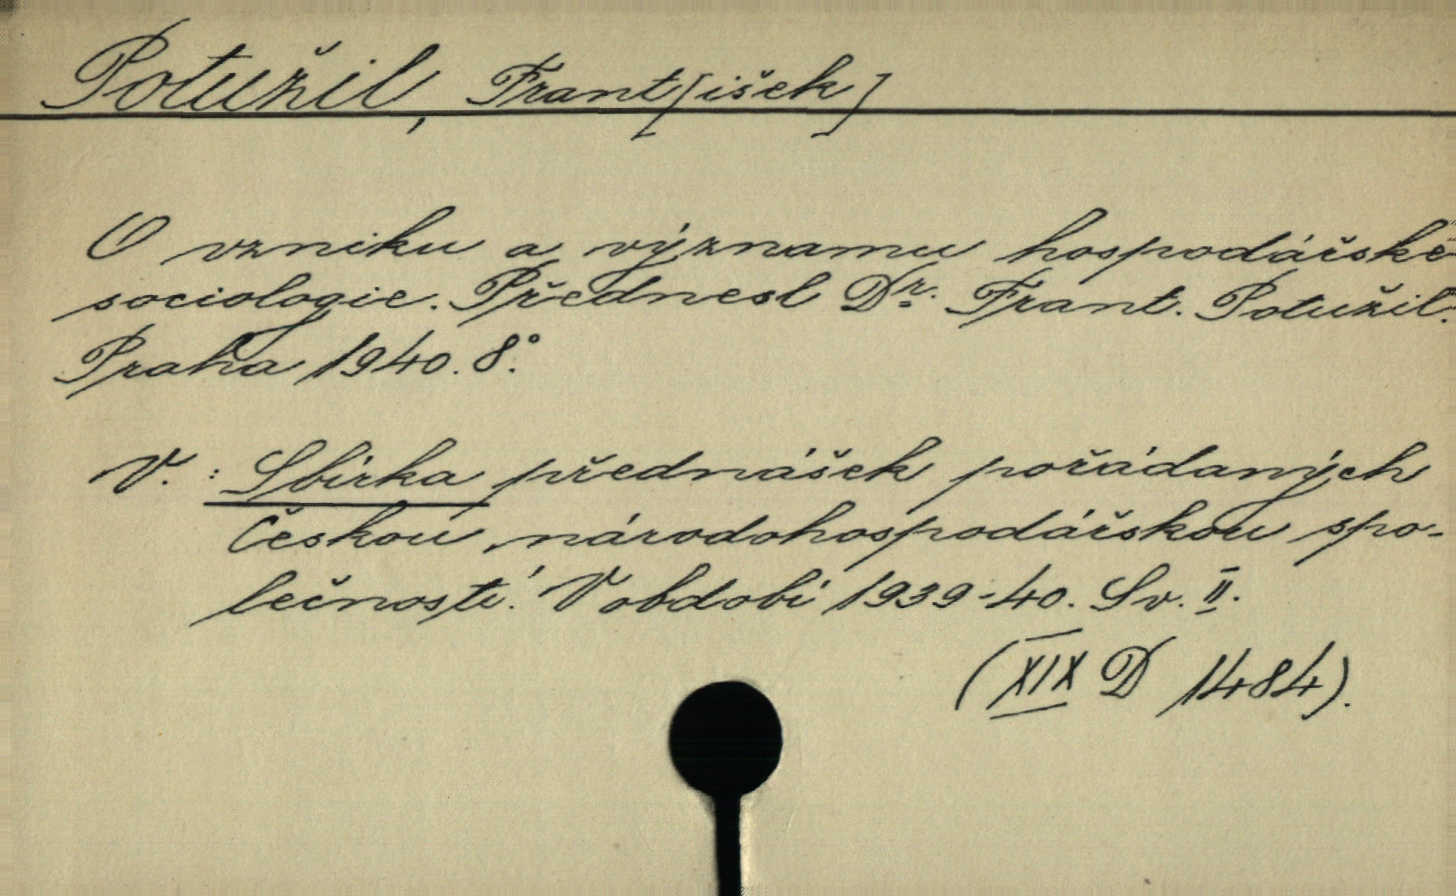 Potužil, Frant[išek]
O vzniku a významu hospodářské
sociologie. Přednesl Dr. Frant. Potužil.
Praha 1940. 8.°
V. : Sbírka přednášek pořádaných
Českou národohospodářskou spo-
lečností. V období 1939-40. Sv. II.
(XIX D 1484).